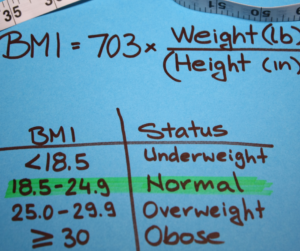 35
BMI = 703 × Weight (lb)
(Height (in)
BMI Status
<18.5 Underweight
18.5-24.9 Normal
25.0-29.9 Overweight
≥ 30 Obose